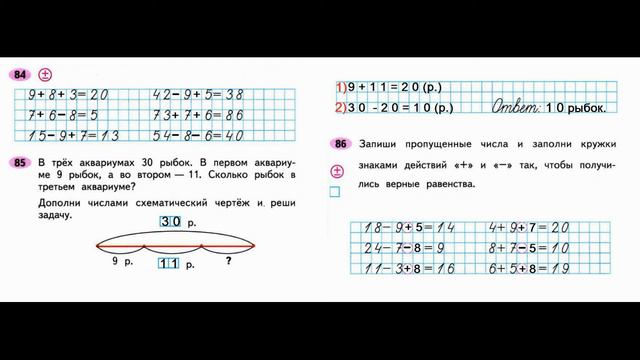 84
9+8+3=20 42-9+5=38
7+6-8=5 73+7+6=86
15-9+7=13 54-8-6=40
85 В трёх аквариумах 30 рыбок. В первом аквариу-
ме 9 рыбок, а во втором — 11. Сколько рыбок в
третьем аквариуме?
Дополни числами схематический чертёж и реши
задачу.
30 р.
9 р. 11 р. ?
1) 9+11=20(р.)
2) 30-20=10(р.) Ответ: 10 рыбок.
86 Запиши пропущенные числа и заполни кружки
знаками действий «+» и «−» так, чтобы получи-
лись верные равенства.
18-9+5=14 4+9+7=20
24-7-8=9 8+7-5=10
11-3+8=16 6+5+8=19